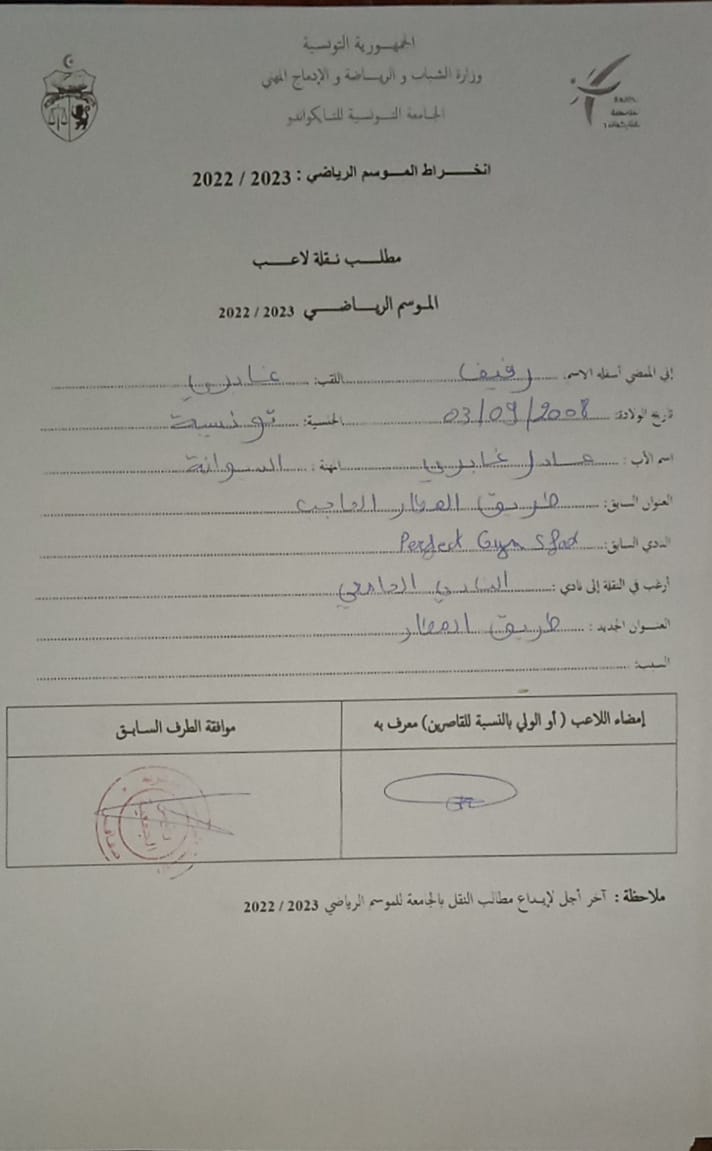 الجمهورية التونسية
وزارة الشباب و الرياضة و الإدماج المهني
الجامعة التونسية للتايكواندو
انخراط الموسم الرياضي : 2023 / 2022
مطلب نقلة لاعب
الموسم الرياضي 2023 / 2022
إني الممضي أسفله الاسم: اللقب:
تاريخ الولادة: 03/09/2008 الجنسية: تونسية
اسم الأب: المهنة:
العنوان السابق: طريق المطار
النادي السابق: Perfect Gym Sfax
أرغب في النقلة إلى نادي: النادي الجامعي
العنوان الجديد: طريق المطار
السبب:
إمضاء اللاعب ( أو الولي بالنسبة للقاصرين) معرف به
موافقة الطرف السابق
ملاحظة : آخر أجل لإيداع مطالب النقل بالجامعة للموسم الرياضي 2023 / 2022